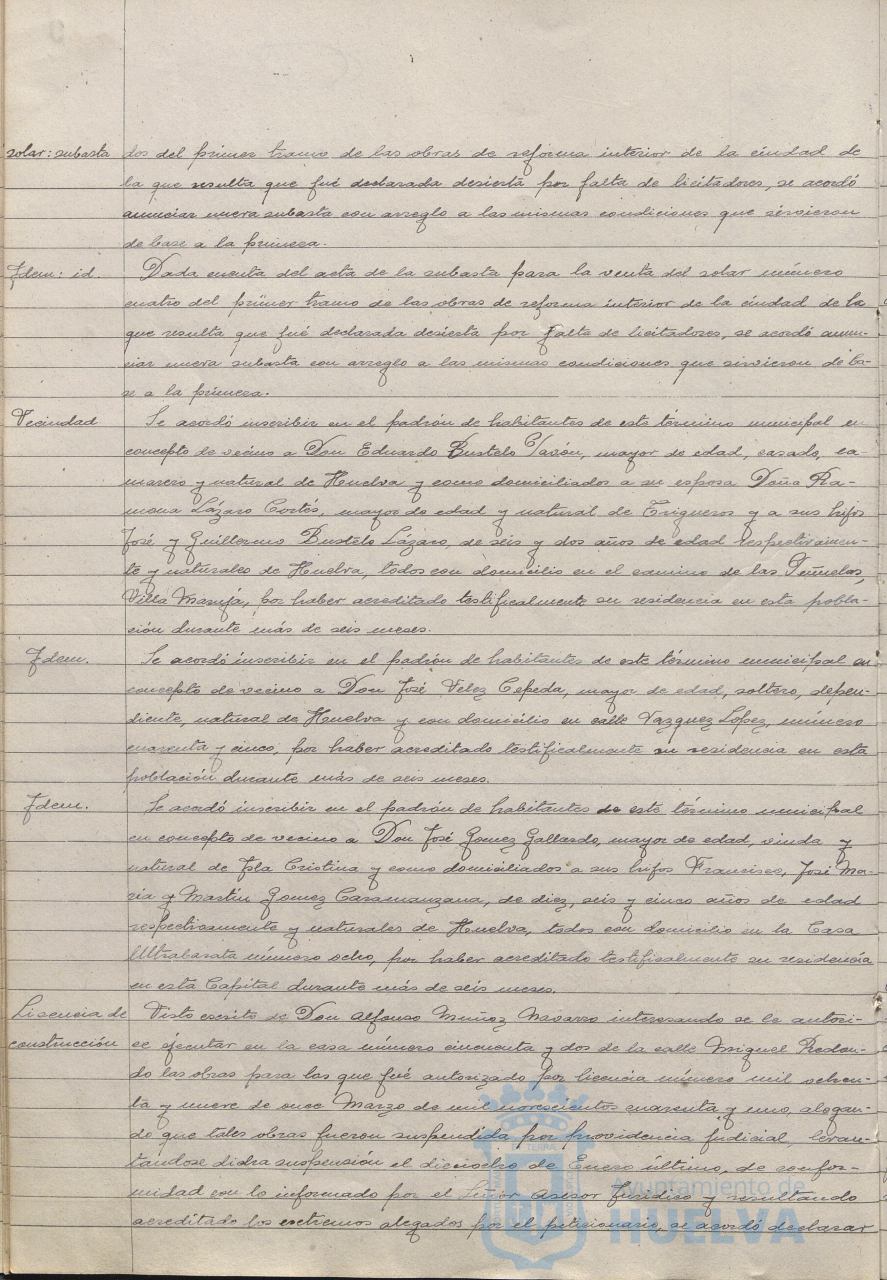 solar: subasta dos del primer tramo de las obras de reforma interior de la ciudad de
la que resulta que fué declarada desierta por falta de licitadores, se acordó
anunciar nueva subasta con arreglo a las mismas condiciones que sirvieron
de base a la primera.
Idem: id. Dada cuenta del acta de la subasta para la venta del solar número
cuatro del primer tramo de las obras de reforma interior de la ciudad de la
que resulta que fué declarada desierta por falta de licitadores, se acordó anun-
ciar nueva subasta con arreglo a las mismas condiciones que sirvieron de ba-
se a la primera.
Vecindad Se acordó inscribir en el padrón de habitantes de este término municipal en
concepto de vecino a Don Eduardo Bustelo Pavón, mayor de edad, casado, ca-
marero y natural de Huelva y como domiciliados a su esposa Doña Ra-
mona Lázaro Cortés, mayor de edad y natural de Trigueros y a sus hijos
José y Guillermo Bustelo Lázaro, de seis y dos años de edad respectivamen-
te y naturales de Huelva, todos con domicilio en el camino de las Peñuelas,
Villa Maruja, por haber acreditado testificalmente su residencia en esta pobla-
ción durante más de seis meses.
Idem. Se acordó inscribir en el padrón de habitantes de este término municipal en
concepto de vecino a Don José Velez Cepeda, mayor de edad, soltero, depen-
diente, natural de Huelva y con domicilio en calle Vazquez Lopez, número
cuarenta y cinco, por haber acreditado testificalmente su residencia en esta
población durante más de seis meses.
Idem. Se acordó inscribir en el padrón de habitantes de este término municipal
en concepto de vecino a Don José Gomez Gallardo, mayor de edad, viudo y
natural de Isla Cristina y como domiciliados a sus hijos Francisco, José Ma-
ria y Martin Gomez Casamanzana, de diez, seis y cinco años de edad
respectivamente y naturales de Huelva, todos con domicilio en la Casa
Ultrabarata número ocho, por haber acreditado testificalmente su residencia
en esta Capital durante más de seis meses.
Licencia de Visto escrito de Don Alfonso Muñoz Navarro interesando se le autori-
construcción ce ejecutar en la casa número cincuenta y dos de la calle Miguel Redon-
do las obras para las que fué autorizado por licencia número mil ochen-
ta y nueve de once Marzo de mil novecientos cuarenta y uno, alegan-
do que tales obras fueron suspendida por providencia judicial, levan-
tandose dicha suspensión el dieciocho de Enero último, de confor-
midad con lo informado por el Señor Asesor Juridico y resultando
acreditado los extremos alegados por el peticionario, se acordó declarar
Ayuntamiento de
HUELVA